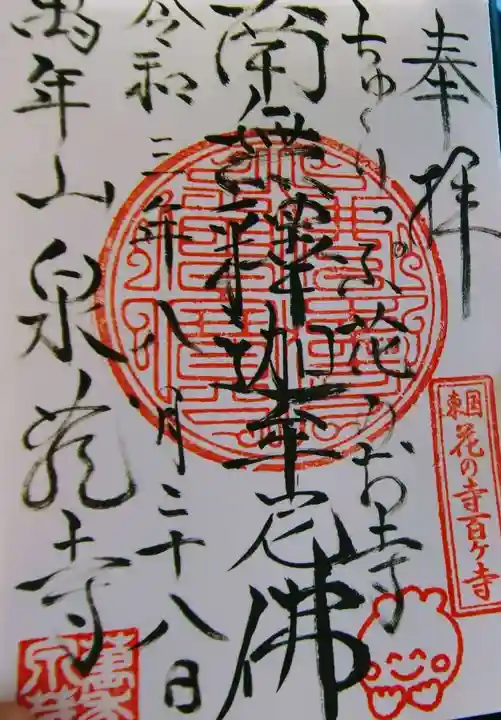 奉拝
東国花の寺百ヶ寺
ちゅーりっぷ花のお寺
南無釋迦牟尼佛
令和三年八月二十八日
萬年山泉龍寺